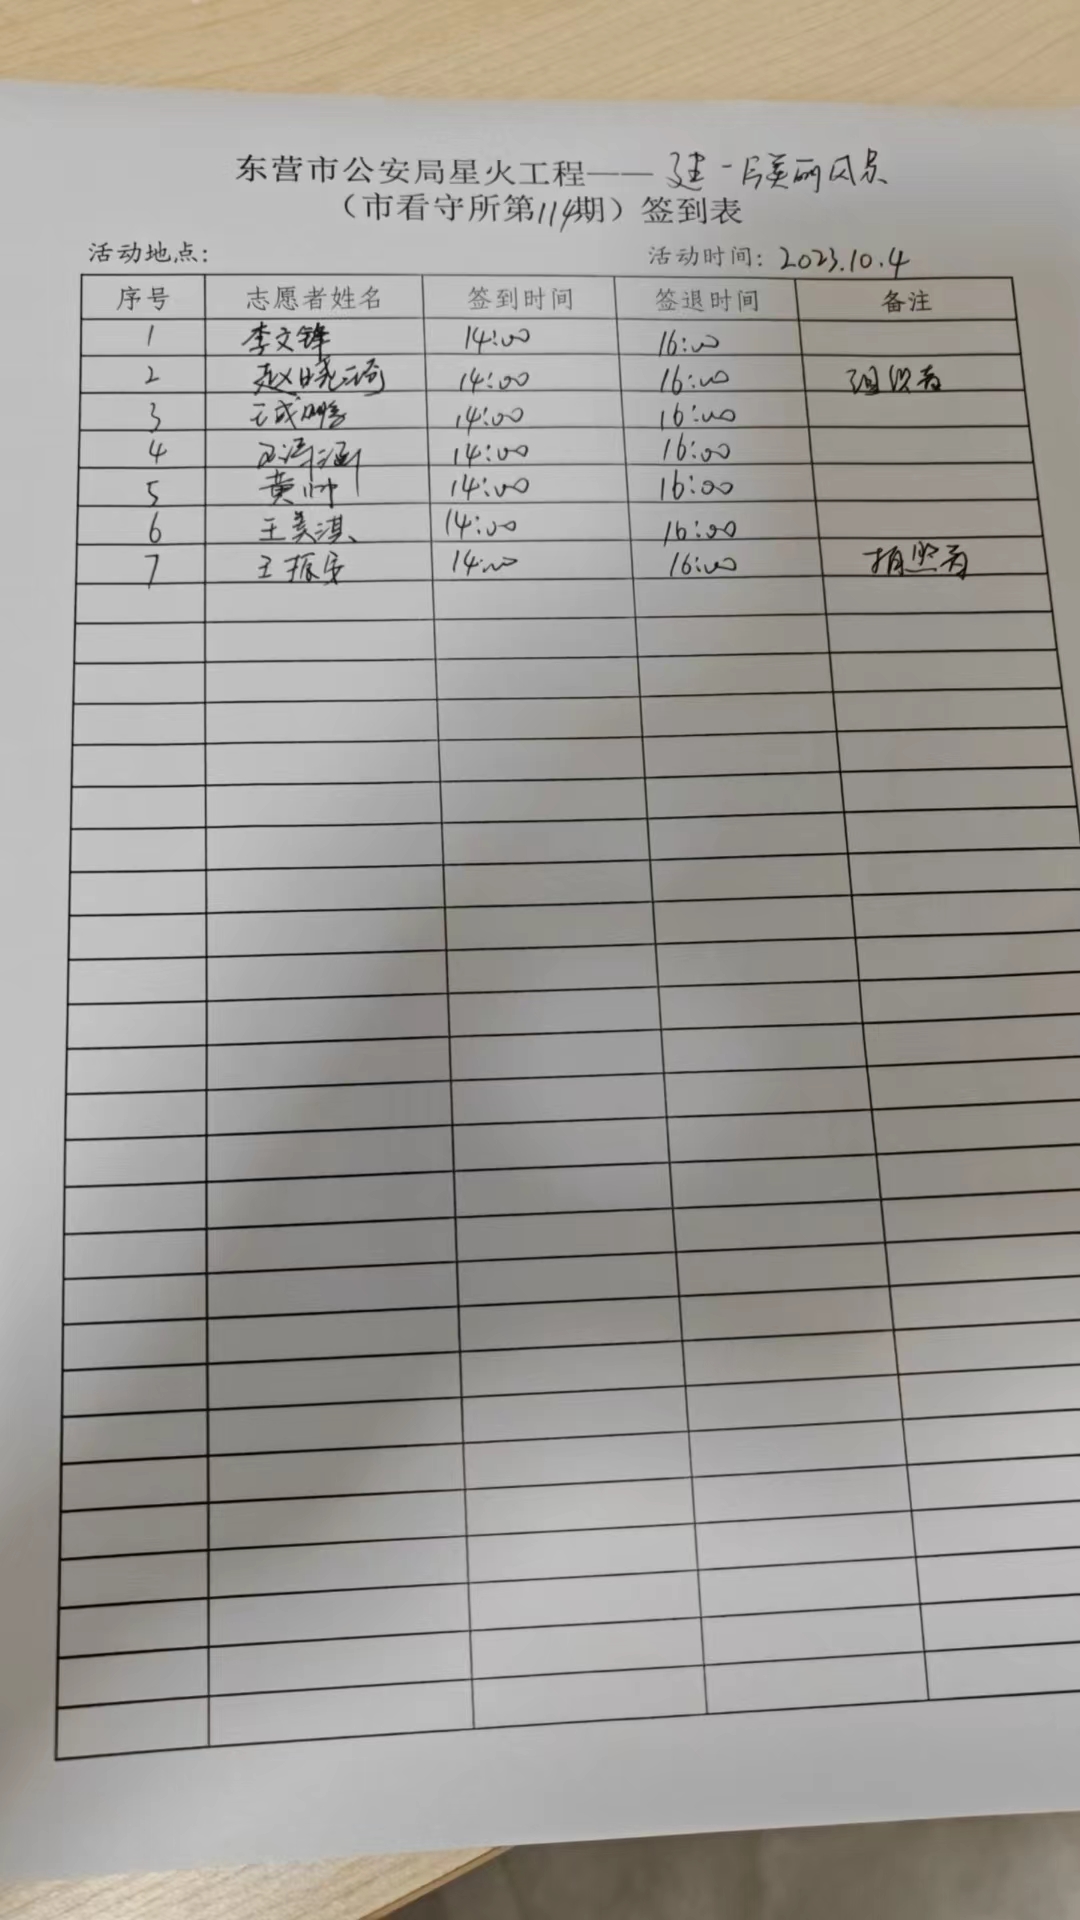 东营市公安局星火工程——建一片美丽风景
（市看守所第114期）签到表
活动地点：
活动时间：2023.10.4
序号 志愿者姓名 签到时间 签退时间 备注
1 李文锋 14:00 16:00
2 赵晓琦 14:00 16:00 组织者
3 王成鹏 14:00 16:00
4 14:00 16:00
5 黄帅 14:00 16:00
6 王美淇 14:00 16:00
7 王振安 14:00 16:00 拍照者